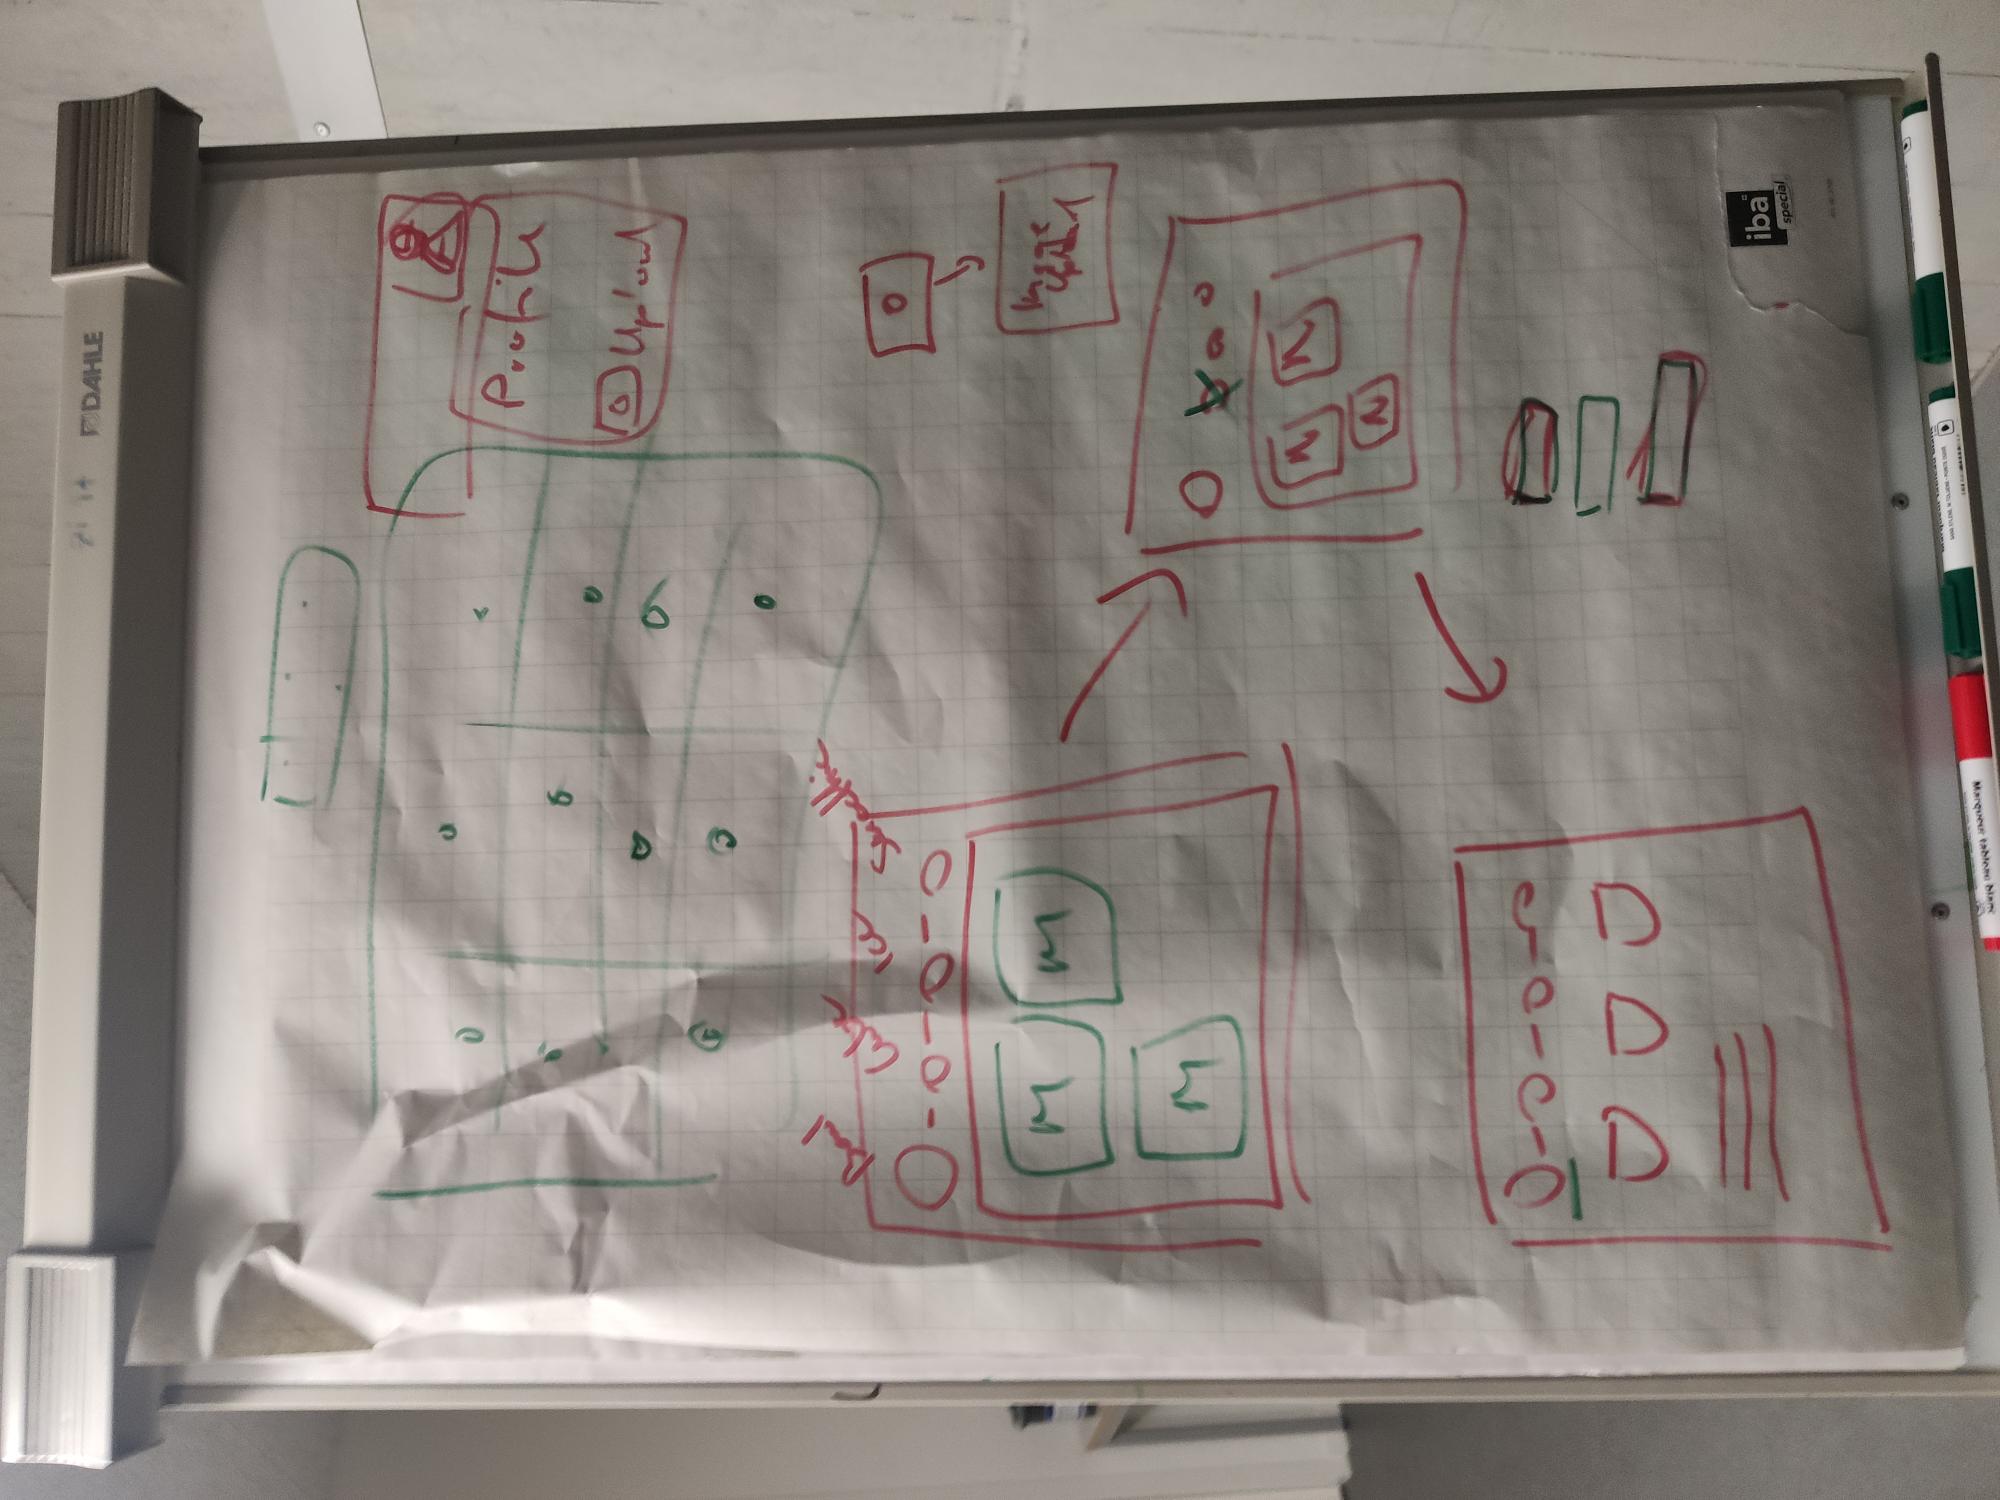 DAHLE
Profile
Upload
Bowl
Cube
Ice
Smoothie
M M
M
Image
Upload
N N
N
iba
special
Marqueur tableau blanc